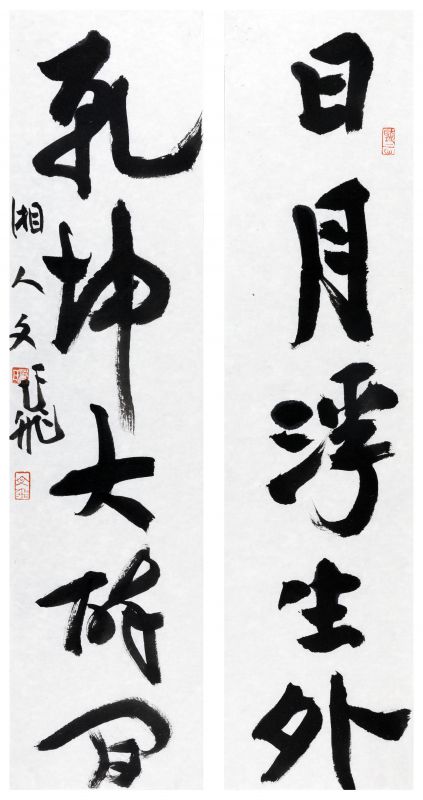 日月浮生外
乾坤大醉間
湘人文飛